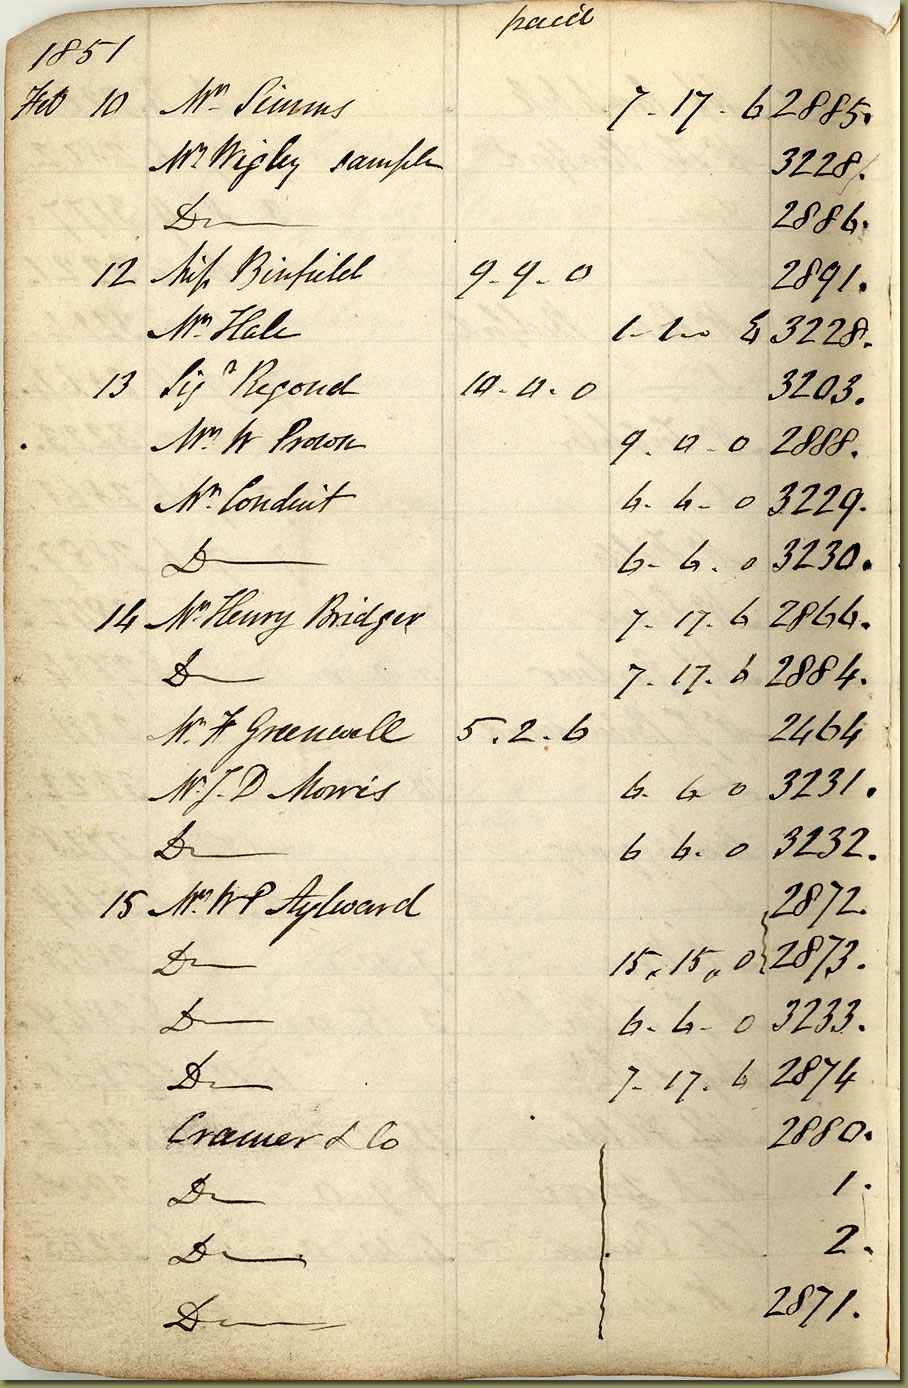 paid
1851
Feb 10 Mr. Simms 7-17-6 2885.
Mr. Wigley sample 3228.
Do 2886.
12 Miss Binfield 9-9-0 2891.
Mr. Hale 1-1-0 3228.
13 Sigr Regondi 10-0-0 3203.
Mr. W Brown 9-0-0 2888.
Mr. Conduit 6-6-0 3229.
Do 6-6-0 3230.
14 Mr. Henry Bridger 7-17-6 2866.
Do 7-17-6 2884.
Mr. F Greenwell 5.2.6 2464
Mr. J. D Morris 6-6 0 3231.
Do 6 6-0 3232.
15 Mr. W P Aylward 2872.
Do 15,15,0 2873.
Do 6-6-0 3233.
Do 7-17.6 2874
Cramer & Co 2880.
Do 1.
Do 2.
Do 2871.